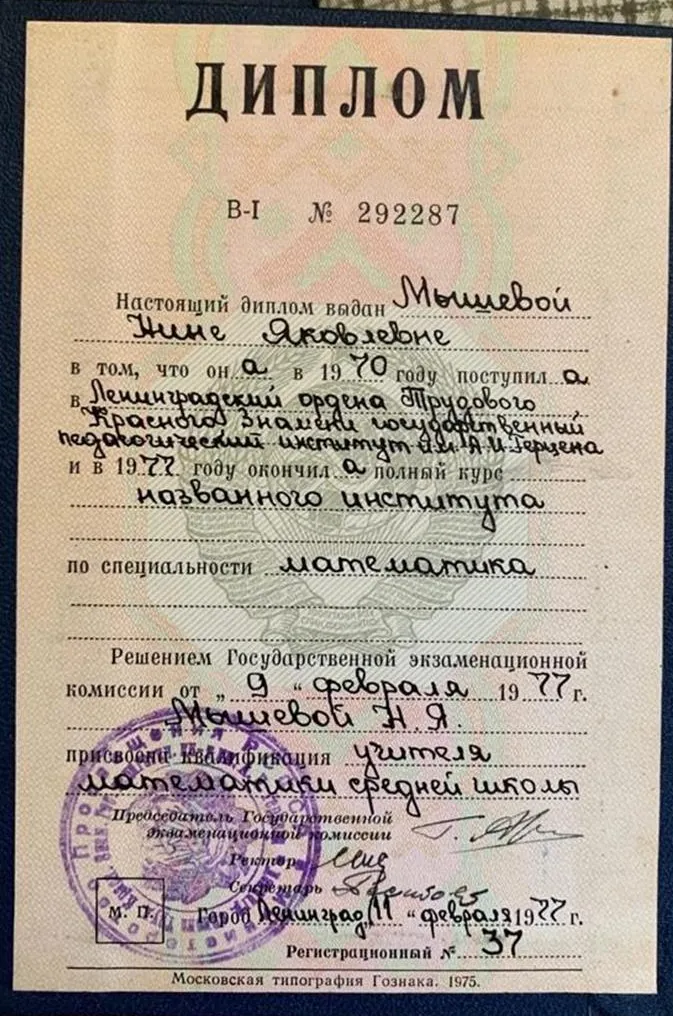 ДИПЛОМ
В-I № 292287
Настоящий диплом выдан Мышевой
Нине Яковлевне
в том, что он а в 1970 году поступил а
в Ленинградский ордена Трудового
Красного Знамени государственный
педагогический институт им. А.И. Герцена
и в 1977 году окончил а полный курс
названного института
по специальности математика
Решением Государственной экзаменационной
комиссии от „ 9 “ февраля 1977 г.
Мышевой Н.Я.
присвоена квалификация учителя
математики средней школы
Председатель Государственной
экзаменационной комиссии
Ректор
Секретарь
М. П.
Город Ленинград „11 “ февраля 1977 г.
Регистрационный № 37
Московская типография Гознака. 1975.